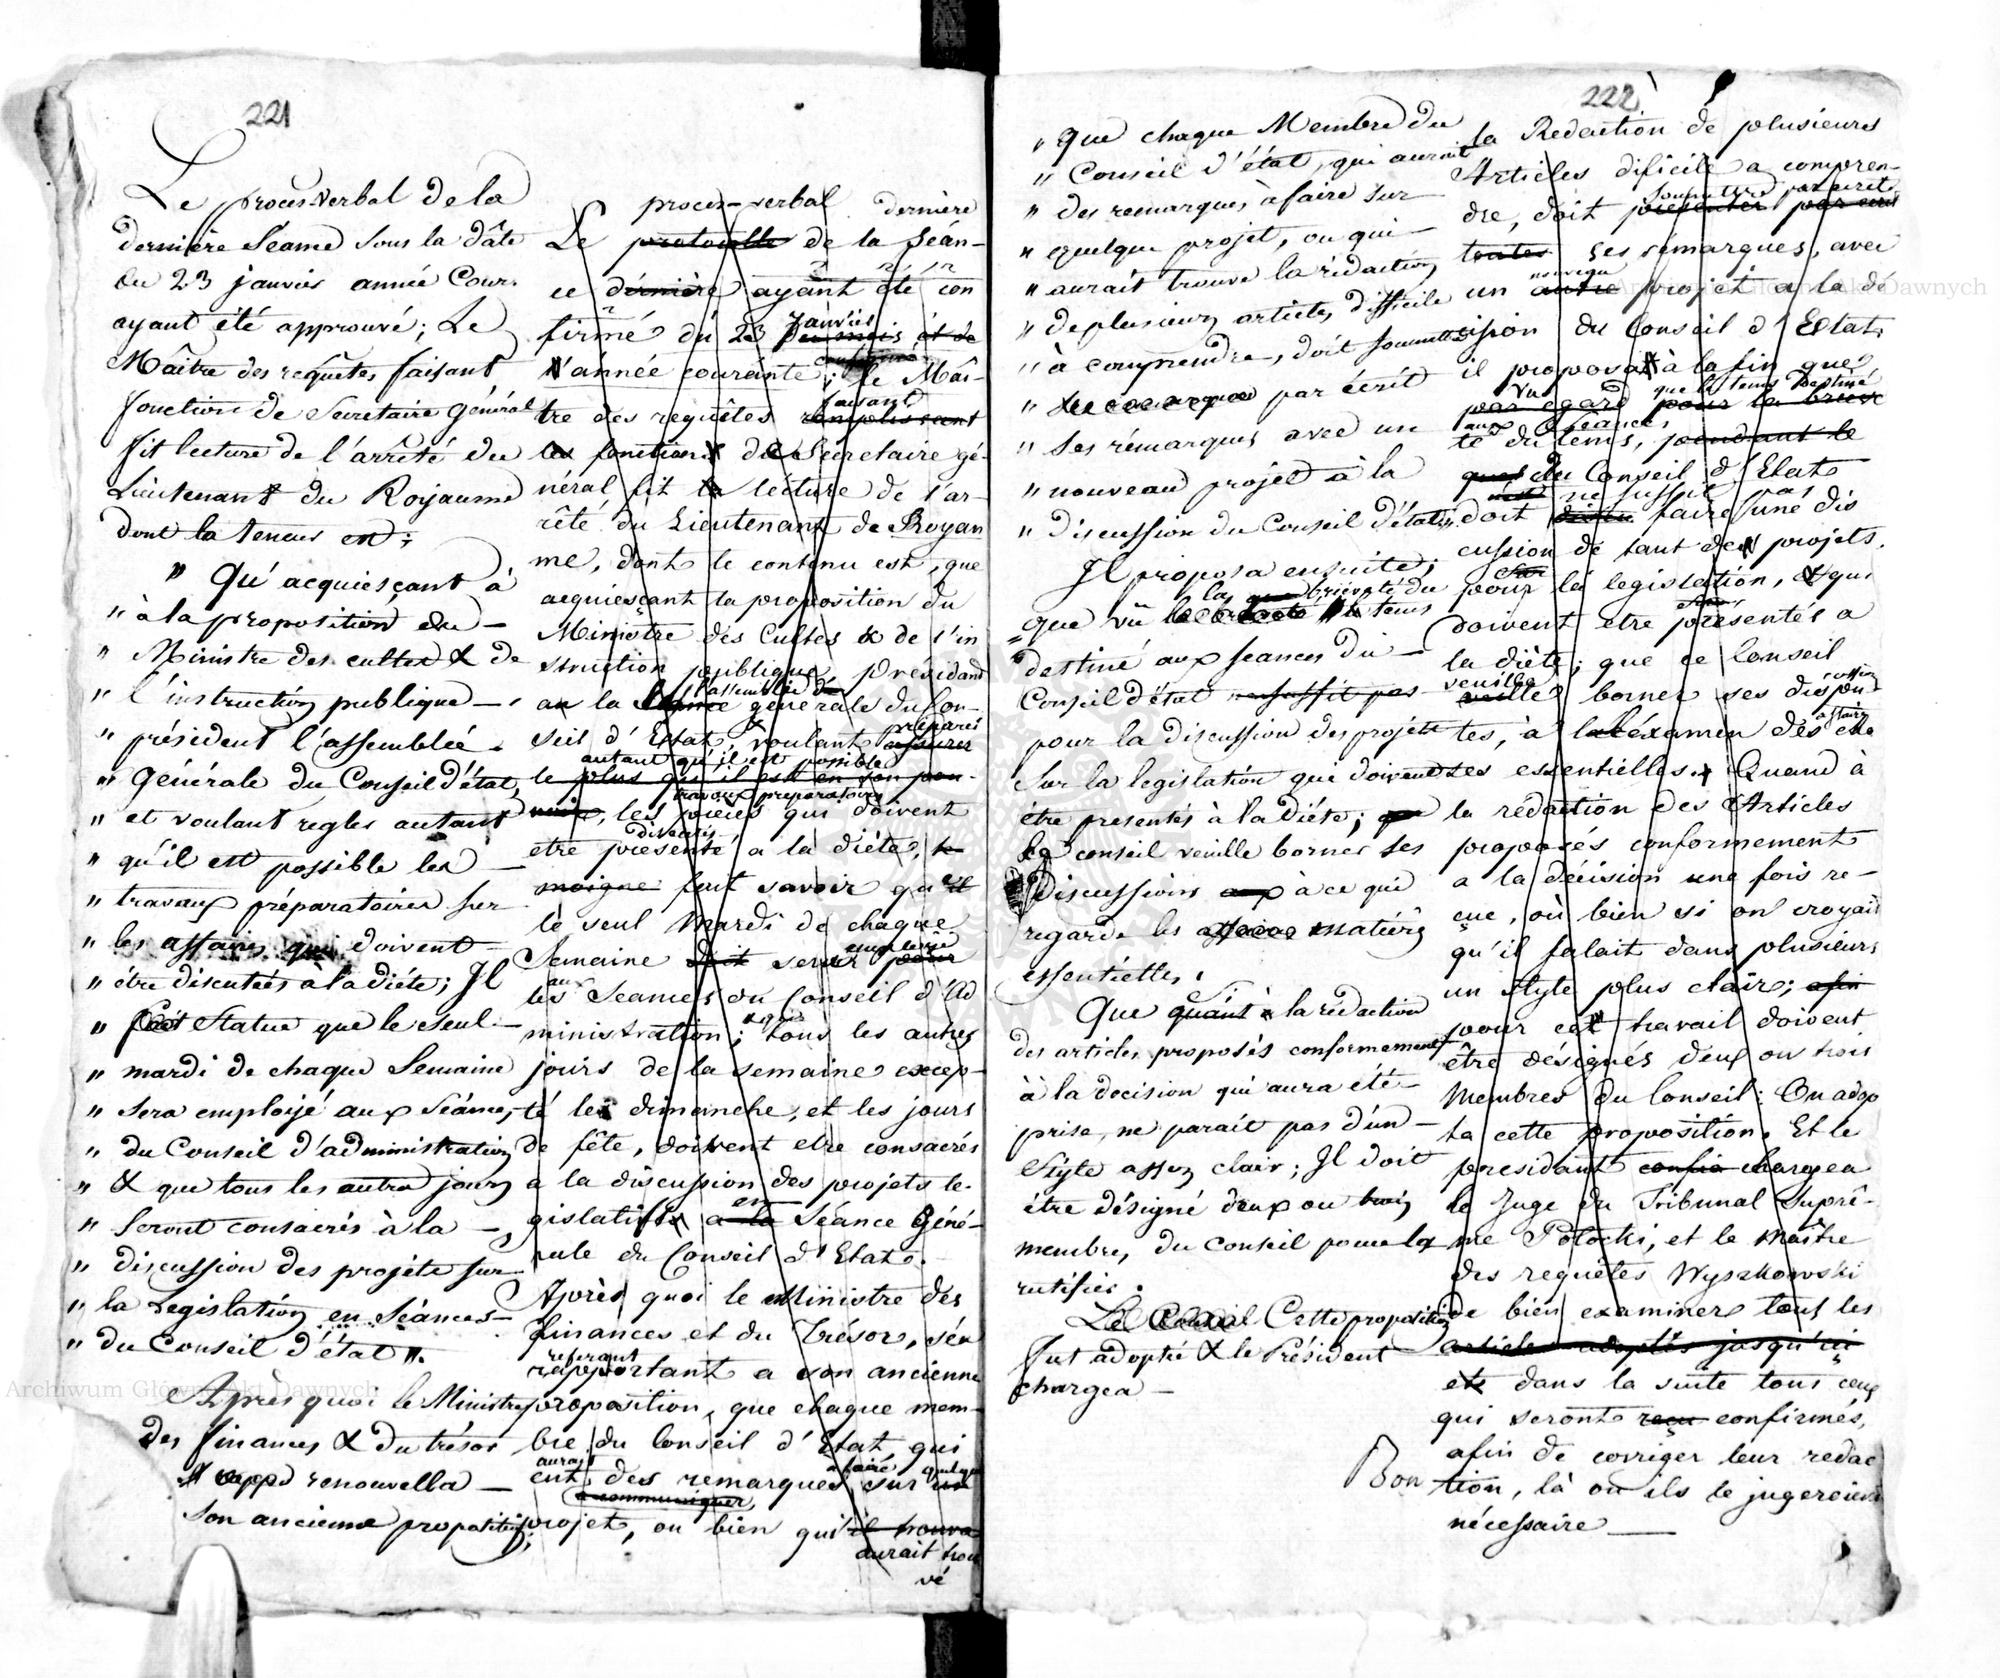 221
Le proces-verbal de la
dernière Séance sous la dâte
du 23 janvier année Cour.
ayant été approuvé; Le
Maître des requêtes faisant
fonction de Secretaire général
fit lecture de l'arrêté du
Lieutenant du Royaume
dont la teneur est:
" Qu'acquiesçant à
" à la proposition du —
" Ministre des cultes & de
" l'instruction publique —
" président l'assemblée
" Générale du Conseil d'état,
" et voulant regler autant
" qu'il est possible les —
" travaux préparatoires sur
" les affaires qui doivent —
" être discutées à la diéte; Il
" Statue que le seul —
" mardi de chaque Semaine
" sera employé aux Séances
" du Conseil d'administration
" & que tous les autres jours
" seront consacrés à la —
" discussion des projets sur
" la Legislation en Séances —
" du Conseil d'état ".
Après quoi le Ministre
des finances & du trésor
renouvella —
son ancienne proposition;
Le proces-verbal dernière
Le protocolle de la Séan-
ce dernière ayant été con
firmé du 23 Janvier
l'année courante; le Maî-
faisant
tre des requêtes remplissant
les fonctions de Secretaire gé-
néral fit la lécture de l'ar-
rêté du Lieutenant de Royau
me, dont le contenu est, que
acquiesçant la proposition du
Ministre des Cultes & de l'in
struction publique, présidant
l'assemblée
a la générale du Con-
préparer
seil d'Etat, voulant assurer
autant qu'il est possible
le plus qu'il est en son pou-
travaux preparatoires
voir, les pieces qui doivent
discutés
etre présenté a la diéte, te-
moigne fait savoir qu'il
le seul Mardi de chaque
employé
Semaine doit servir pour
aux
les Seances du Conseil d'Ad
ministration; tous les autres
jours de la semaine excep-
té les dimanche, et les jours
de fête, doivent etre consacrés
a la discussion des projets le-
en
gislatifs a la Séance Géné-
rale du Conseil d'Etat.
Après quoi le Ministre des
finances et du Trésor, sén
referant
rapportant a son ancienne
proposition, que chaque mem-
bre du Conseil d'Etat, qui
aurait a faire quelque
des remarques sur un
a communiquer
projet, ou bien qu'il trouva
aurait trou
vé
222
" Que chaque Membre du
" Conseil d'état, qui aurait
" des remarques à faire sur
" quelque projet, ou qui —
" aurait trouvé la rédaction
" de plusieurs articles difficile
" à comprendre, doit soumettre
" par écrit
" ses rémarques avec un
" nouveau projet à la
" discussion du Conseil d'état."
Il proposa ensuite;
la briéveté du
que vû tems
destiné aux séances du —
Conseil d'état ne suffit pas
pour la discussion des projets
sur la legislation qui doivent
être presentés à la diéte; que
le conseil veuille borner ses
discussions aux à ce qui
regarde les matières
essentielles.
Que quant à la rédaction
des articles proposés conformement
à la decision qui aura été —
prise, ne parait pas d'un —
Style assez clair; Il doit
être désigné deux ou trois
membres du conseil pour la
ratifier.
Le Conseil Cette proposition
fut adoptée & le Président —
chargea —
la Redaction de plusieurs
Articles dificile a compren-
soumettre par écrit
dre, doit présenter par ecrit
toutes ses remarques, avec
nouveau
un autre projet a la dé
cision du Conseil d'Etat,
il proposa à la fin que
vu que le tems destiné
par egard pour la briéve
aux séances
té du tems, pendant le
quel du Conseil d'Etat
ne suffit pas
doit faire une dis
cussion de tant de projets
sur
pour la legislation, & qui
doivent etre présentés a
la diète; que ce Conseil
veuille cussions
veille borner ses dispu-
affaires
tes, à l'éxamen des cho
ses essentielles. Quand à
la rédaction des Articles
proposés conformement
a la décision une fois re-
çue, où bien si on croyait
qu'il falait dans plusieurs
un style plus clair; afin
pour cet travail doivent
être désignés deux ou trois
Membres du Conseil: On adop
ta cette proposition. Et le
presidant confia chargea
le Juge du Tribunal Suprê-
me Potocki, et le Maître
des requêtes Wyszkowski
de bien examiner tous les
articles adoptés jusqu'ici
et dans la suite tous ceux
qui seront reçu confirmés,
afin de corriger leur redac
Bon tion, là où ils le jugeroient
nécessaire —
Archiwum Główne Akt Dawnych
Archiwum Główne Akt Dawnych